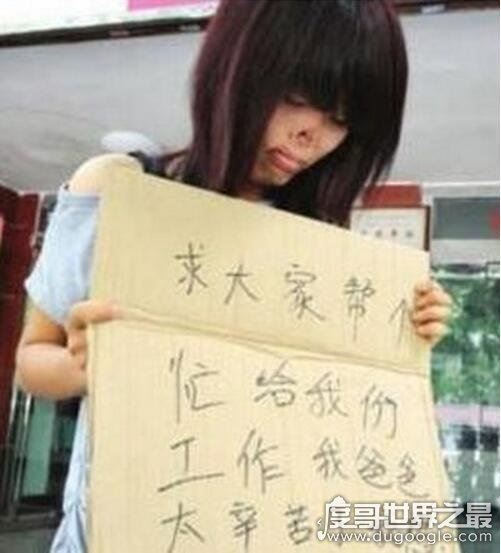 求大家帮个
忙给我们
工作我爸爸
太辛苦
度哥世界之最
www.dugoogle.com